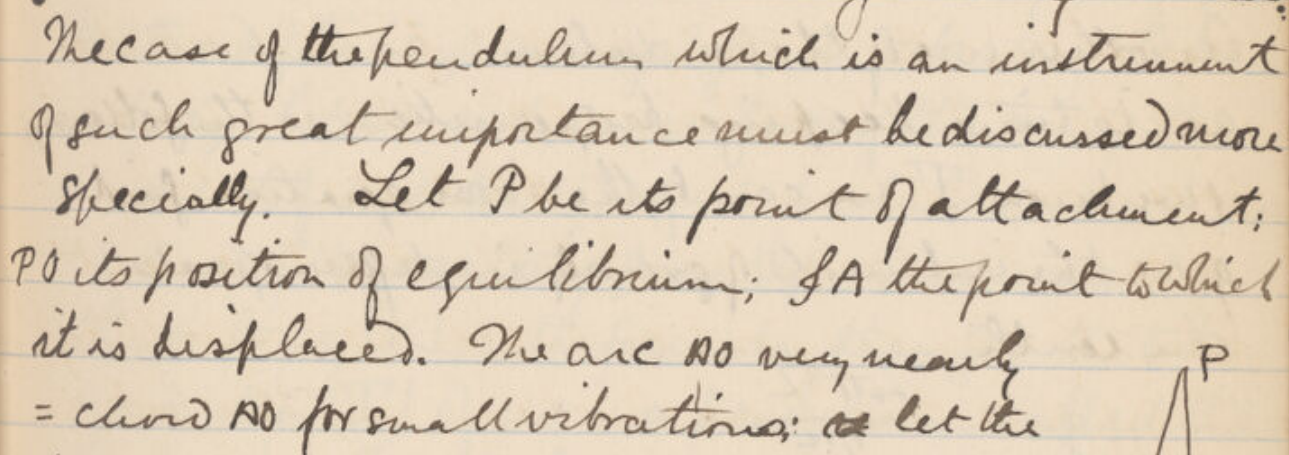 The case of the pendulum which is an instrument
of such great importance must be discussed more
specially. Let P be its point of attachment;
PO its position of equilibrium; & A the point to which
it is displaced. The arc AO very nearly
P
= chord AO for small vibrations; let the